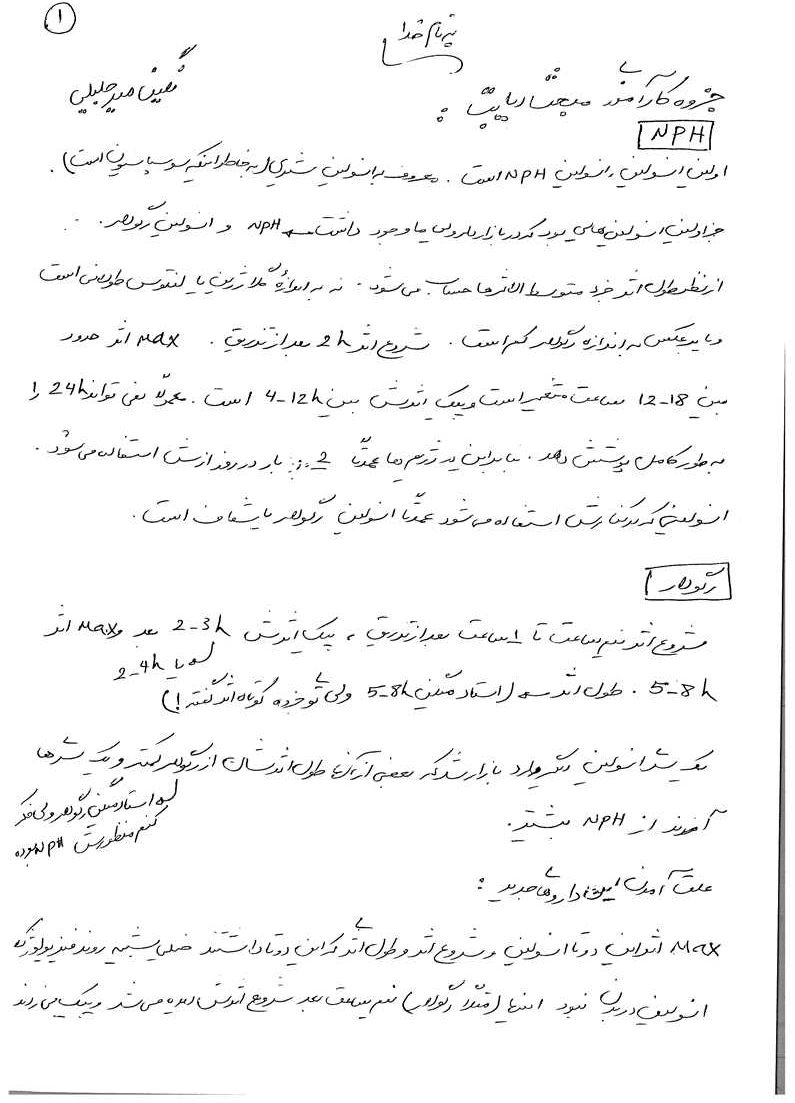 ۱
به نام خدا
جزوه کارآموزی مبحث دیابت :
نگین میرجلیلی
NPH
اولین انسولین، انسولین NPH است. معروف به انسولین شیری (به خاطر اینکه سوسپانسیون است).
جزو اولین انسولین‌هایی بود که در بازار دارویی ما وجود داشت → NPH و انسولین رگولار.
از نظر طول اثر جزء متوسط الاثرها حساب می‌شود. نه به اندازهٔ گلارژین یا لنتوس طولانی است
و یا برعکس به اندازه رگولار کم است. شروع اثر 2h بعد از تزریق. Max اثر حدود
بین 12-18 ساعت متغیر است و پیک اثرش بین 4-12h است. معمولاً نمی تواند 24h را
به طور کامل پوشش دهد. بنابراین در رژیم ها عمدتاً 2 بار در روز ازش استفاده می‌شود.
انسولینی که در کنارش استفاده می‌شود عمدتاً انسولین رگولار یا شفاف است.
رگولار
شروع اثر نیم ساعت تا 1 ساعت بعد از تزریق، پیک اثرش 2-3h بعد و Max اثر
↳ یا 2-4h
5-8h. طول اثر → (استاد نگین 5-8h ولی تو جزوه کوتاه اثر گفته!)
یک سری انسولین دیگر وارد بازار شد که بعضی از آن‌ها طول اثرشان از رگولار کمتر و یک سری‌ها
آمدند از NPH بیشتر.
↳ استاد نگین رگولار ولی فکر
کنم منظورش NPH بوده
علت آمدن این داروهای جدید :
Max اثر این دو تا انسولین و شروع اثر و طول اثر که این دو تا داشتند خیلی شبیه روند فیزیولوژیک
انسولین در بدن نبود اینها (مثلاً رگولار) نیم ساعت بعد شروع اثرش دیده می‌شد و پیک می‌زدند